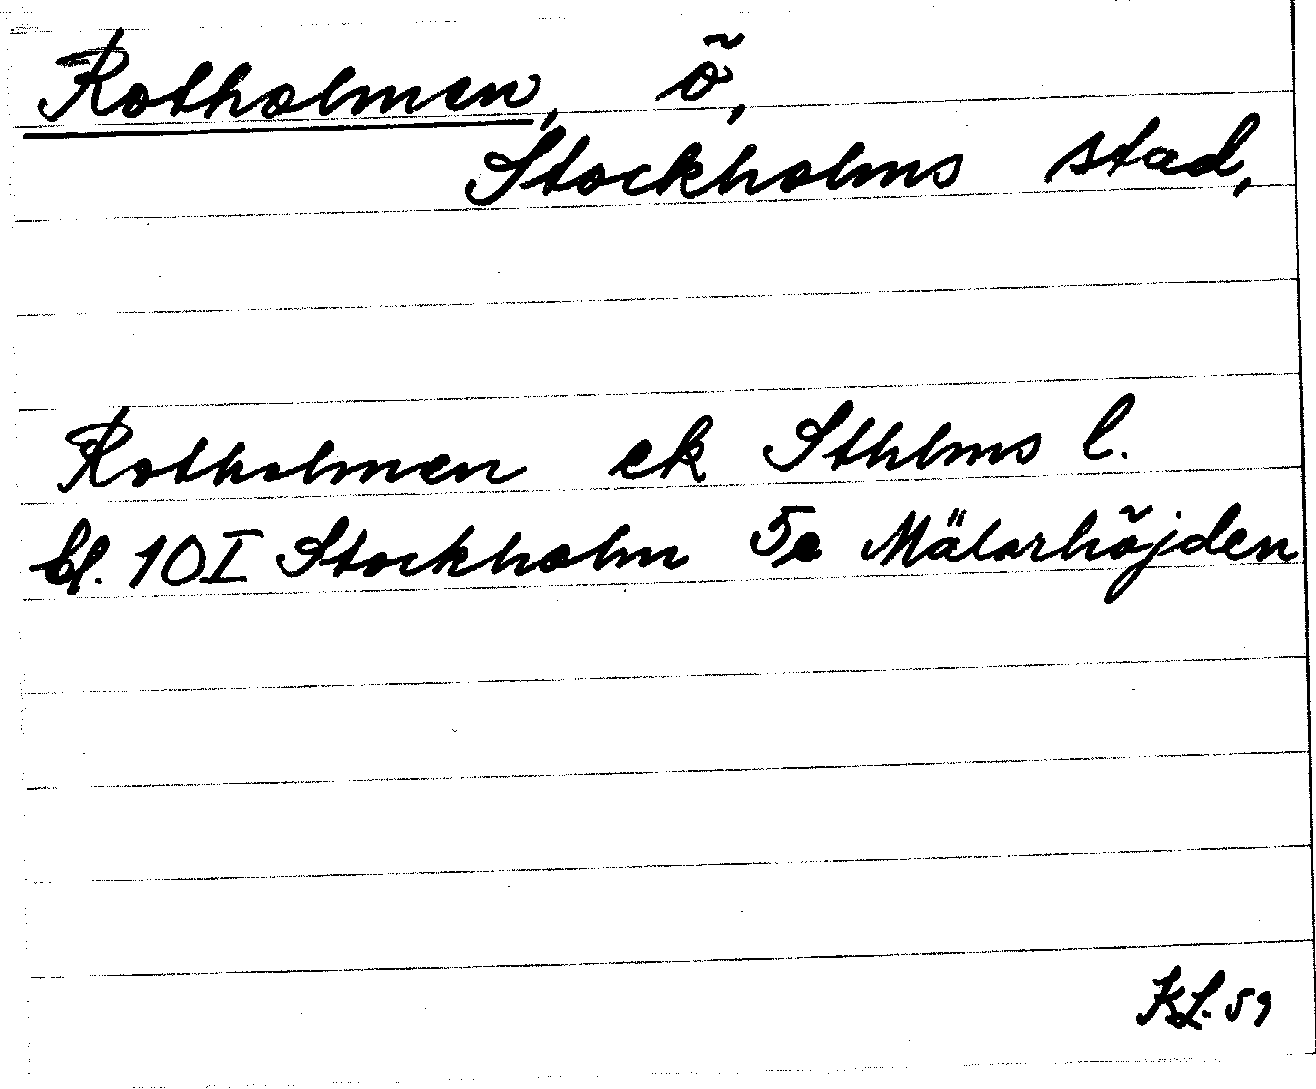 Rotholmen, ö,
Stockholms stad,
Rotholmen ek Sthlms l.
bl. 10 I Stockholm 5a Mälarhöjden
KL. 59